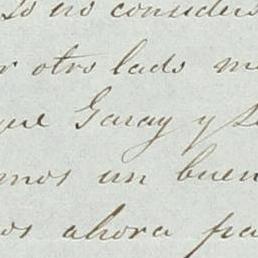 lo no consider
r otro lado m
que Garay y L
mos un buen
os ahora pa